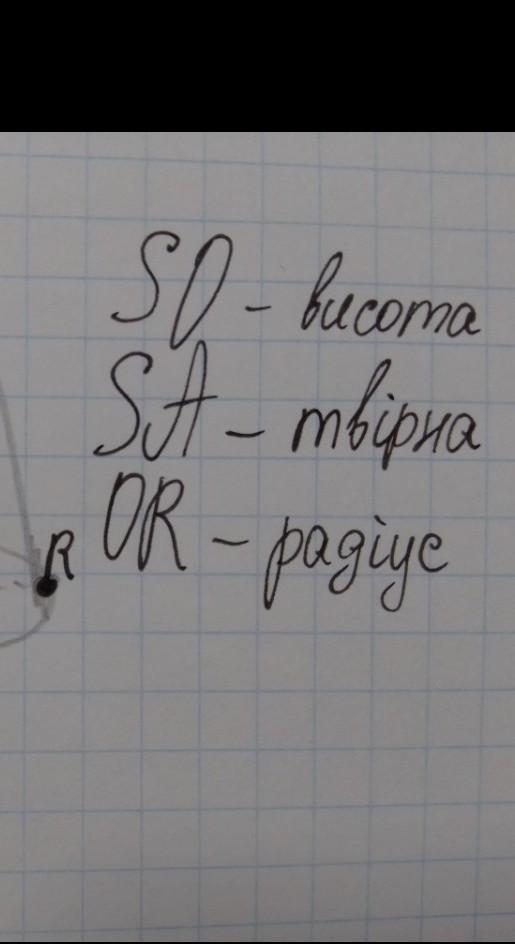 SO - висота
SA - твірна
R
OR - радіус